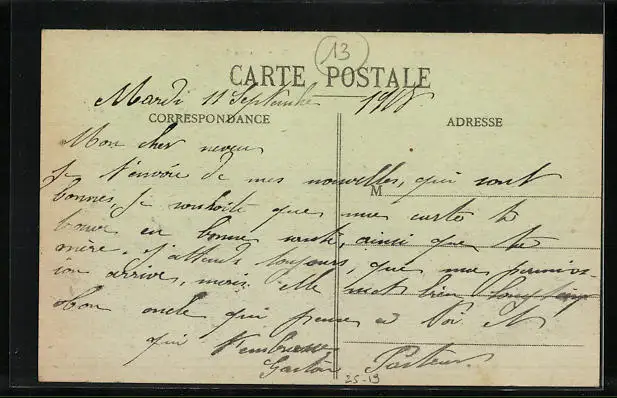 13
CARTE POSTALE
Mardi 11 Septembre
CORRESPONDANCE
ADRESSE
Mon cher neveu
Je t'envoie de mes nouvelles, qui sont
M
bonnes, je souhaite que ma carte te
trouve en bonne santé, ainsi que ta
mère. J'attends toujours, que ma permiss-
ion arrive, mais elle met bien longtemps
Bon oncle qui pense à toi et
qui t'embrasse
Gaston Pasteur
25-19